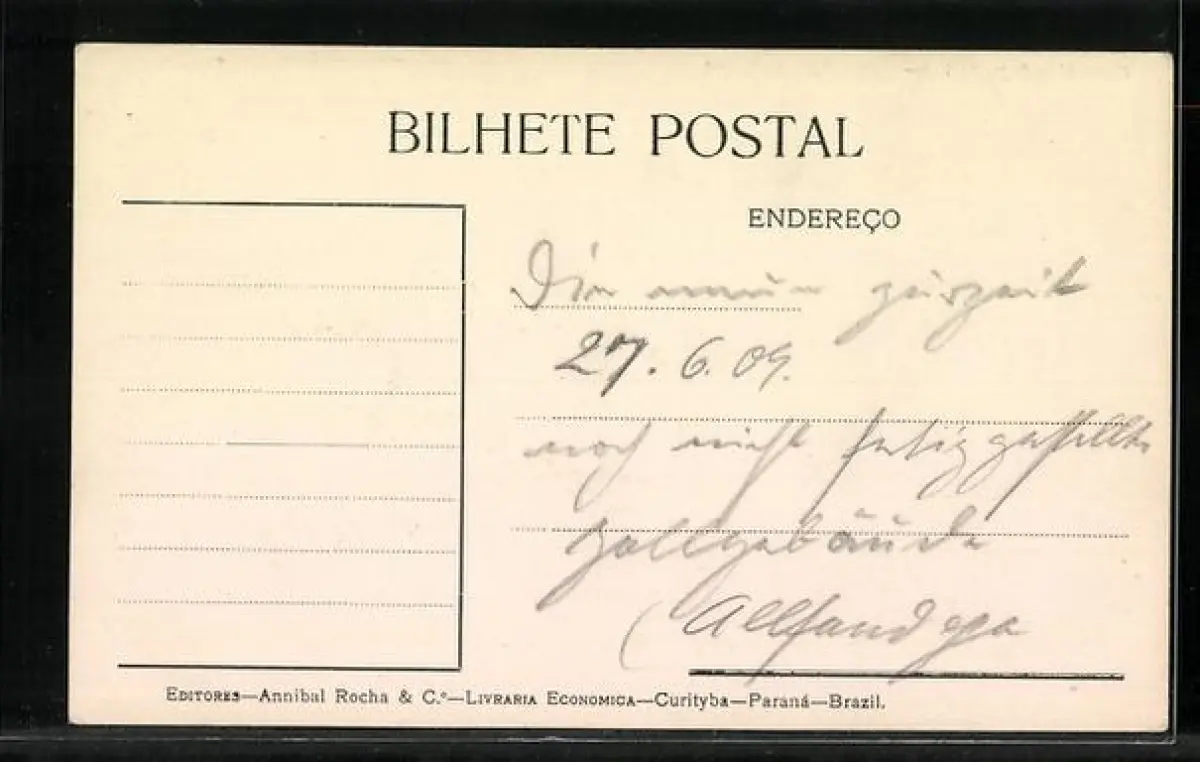 BILHETE POSTAL
ENDEREÇO
Die neue zurzeit
27. 6. 09.
noch nicht fertiggestellte
Zollgebäude
(Allfandega
EDITORES—Annibal Rocha & C.º—LIVRARIA ECONOMICA—Curityba—Paraná—Brazil.